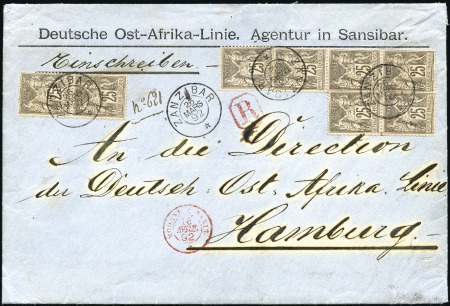 Deutsche Ost-Afrika-Linie. Agentur in Sansibar.
Einschreiben
25 25 25 25 25 25
25 25
No 621
ZANZIBAR
MARS
92
R
An die Direction
der Deutschen Ost. Afrika Linie
Hamburg
92